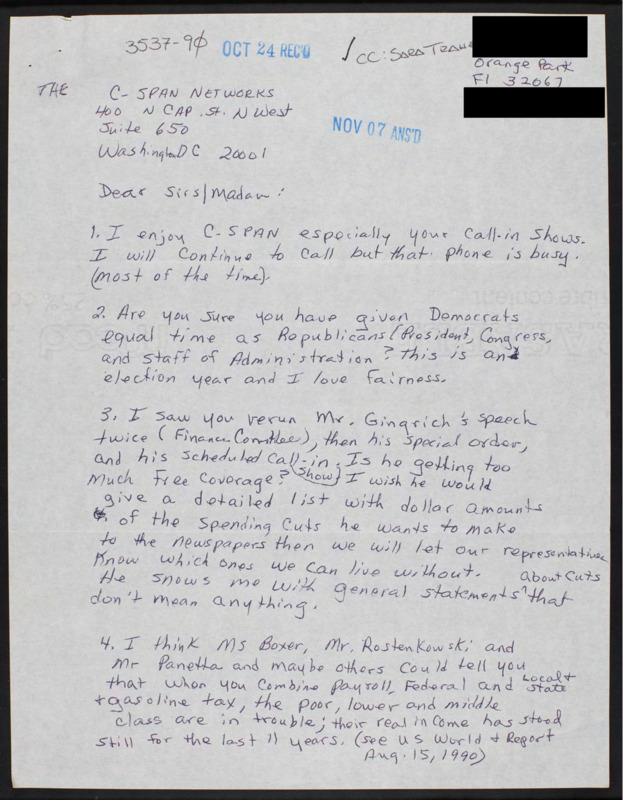 3537-90 OCT 24 REC'D ✓ CC: Sara
Orange Park
Fl 32067
THE C-SPAN NETWORKS
400 N CAP. St. N West
Suite 650
NOV 07 ANS'D
Washington DC 20001
Dear Sirs/Madam:
1. I enjoy C-SPAN especially your call-in shows.
I will continue to call but that phone is busy.
(most of the time).
2. Are you sure you have given Democrats
equal time as Republicans (President, Congress,
and staff of Administration? this is an
election year and I love fairness.
3. I saw you rerun Mr. Gingrich's speech
twice (Finance Committee), then his special order,
and his scheduled call-in (show). Is he getting too
much free coverage? I wish he would
give a detailed list with dollar amounts
of the spending cuts he wants to make
to the newspapers then we will let our representatives
know which ones we can live without.
He snows me with general statements ^ about cuts that
don't mean anything.
4. I think Ms Boxer, Mr. Rostenkowski and
Mr Panetta and maybe others could tell you
that when you combine payroll, Federal and Local + State
+ gasoline tax, the poor, lower and middle
class are in trouble; their real income has stood
still for the last 11 years. (see US World + Report
Aug. 15, 1990)